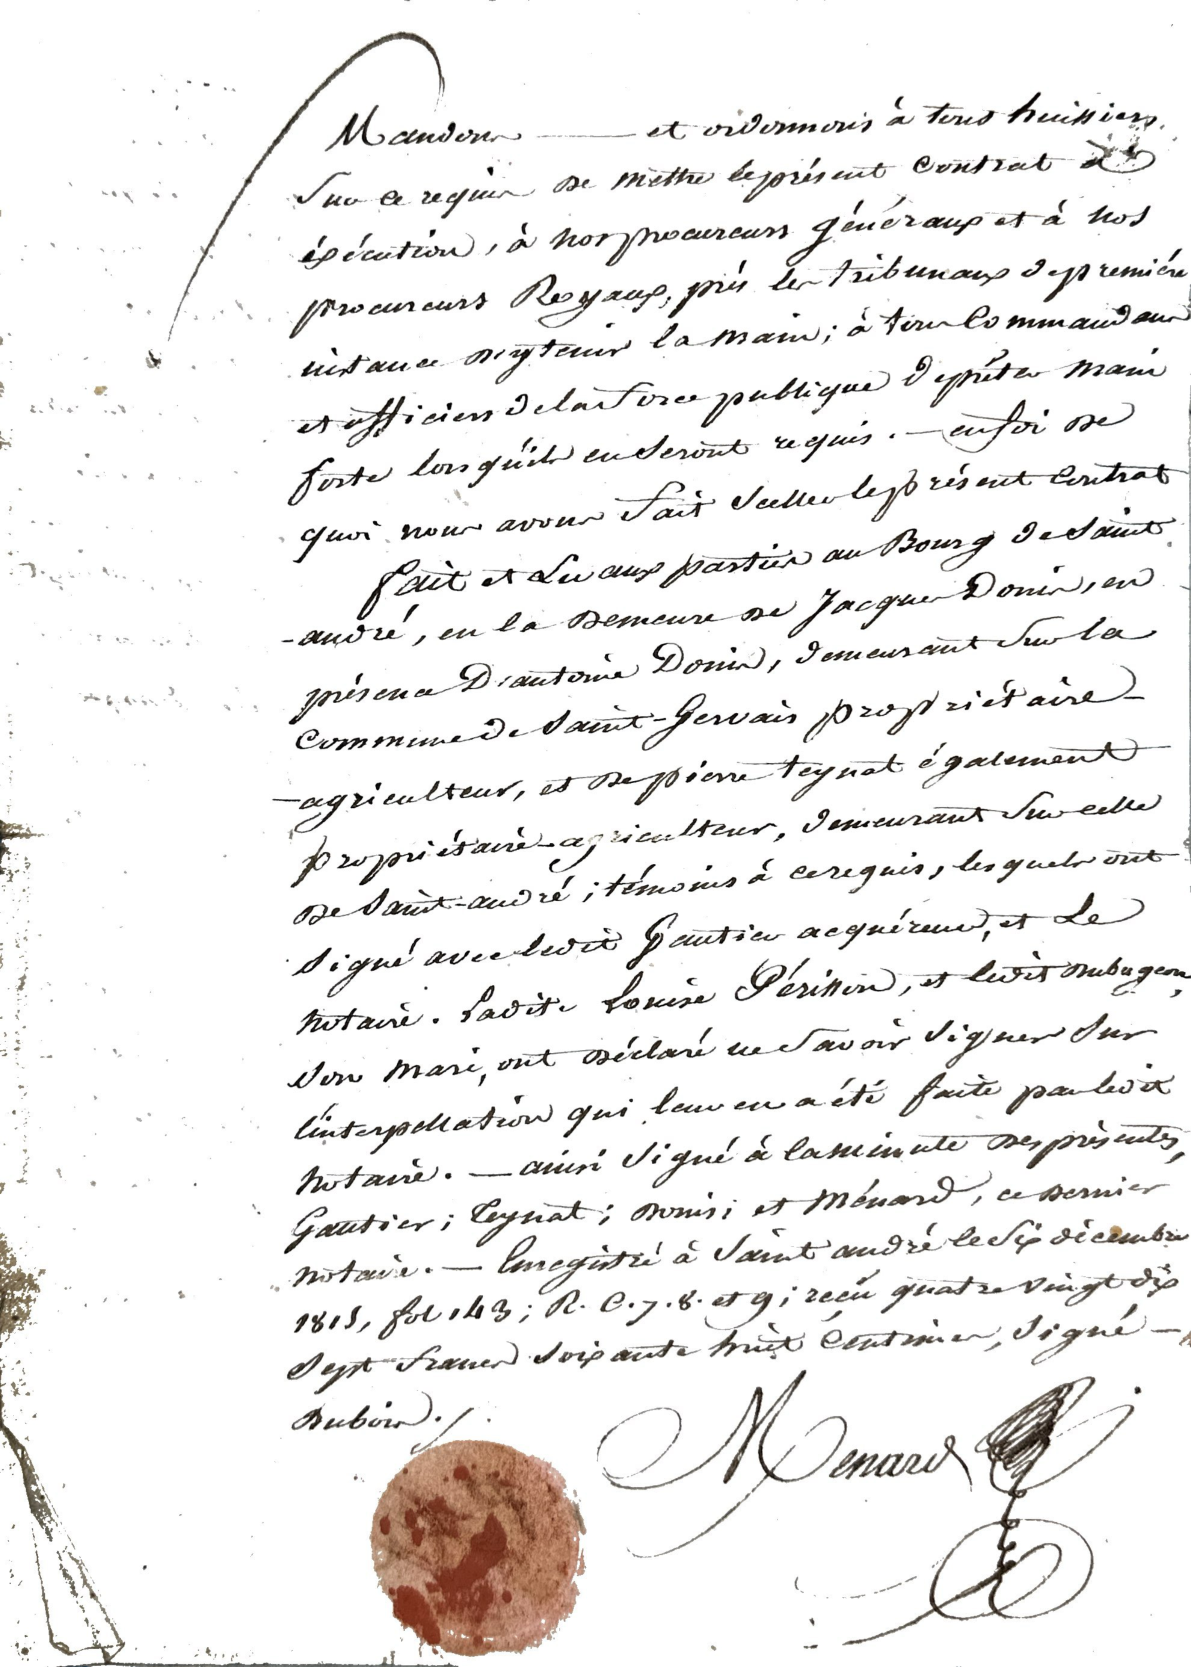 Mandons — et ordonnons à tous huissiers
sur ce requis de mettre le présent contrat à
éxécution, à nos procureurs généraux et à nos
procureurs Royaux, près les tribunaux de première
instance d'y tenir la main ; à tous Commandans
et officiers de la force publique de prêter main
forte lorsqu'ils en seront requis. — en foi de
quoi nous avons fait sceller le présent contrat
fait et Lu aux parties au Bourg de Saint
-andré, en la demeure de Jacques Donis, en
présence D'antoine Donis, demeurant sur la
Commune de Saint-Gervais propriétaire-
-agriculteur, et de pierre teynat également
propriétaire-agriculteur, demeurant sur celle
de Saint-andré ; témoins à ce requis, lesquels ont
signé avec ledit Gautier acquéreur, et Le
notaire. Ladite Louise Périsson, et ledit
son mari, ont déclaré ne savoir signer sur
l'interpellation qui leur en a été faite par ledit
notaire. — ainsi signé à la minute des présentes,
Gautier ; teynat ; donis ; et Ménard, ce dernier
notaire. — Enregistré à Saint andré le six décembre
1815, fol 143 ; R. C. 7. 8. et 9 ; reçu quatre vingt dix
sept francs soixante huit Centimes, signé —
dubois ./.
Menard